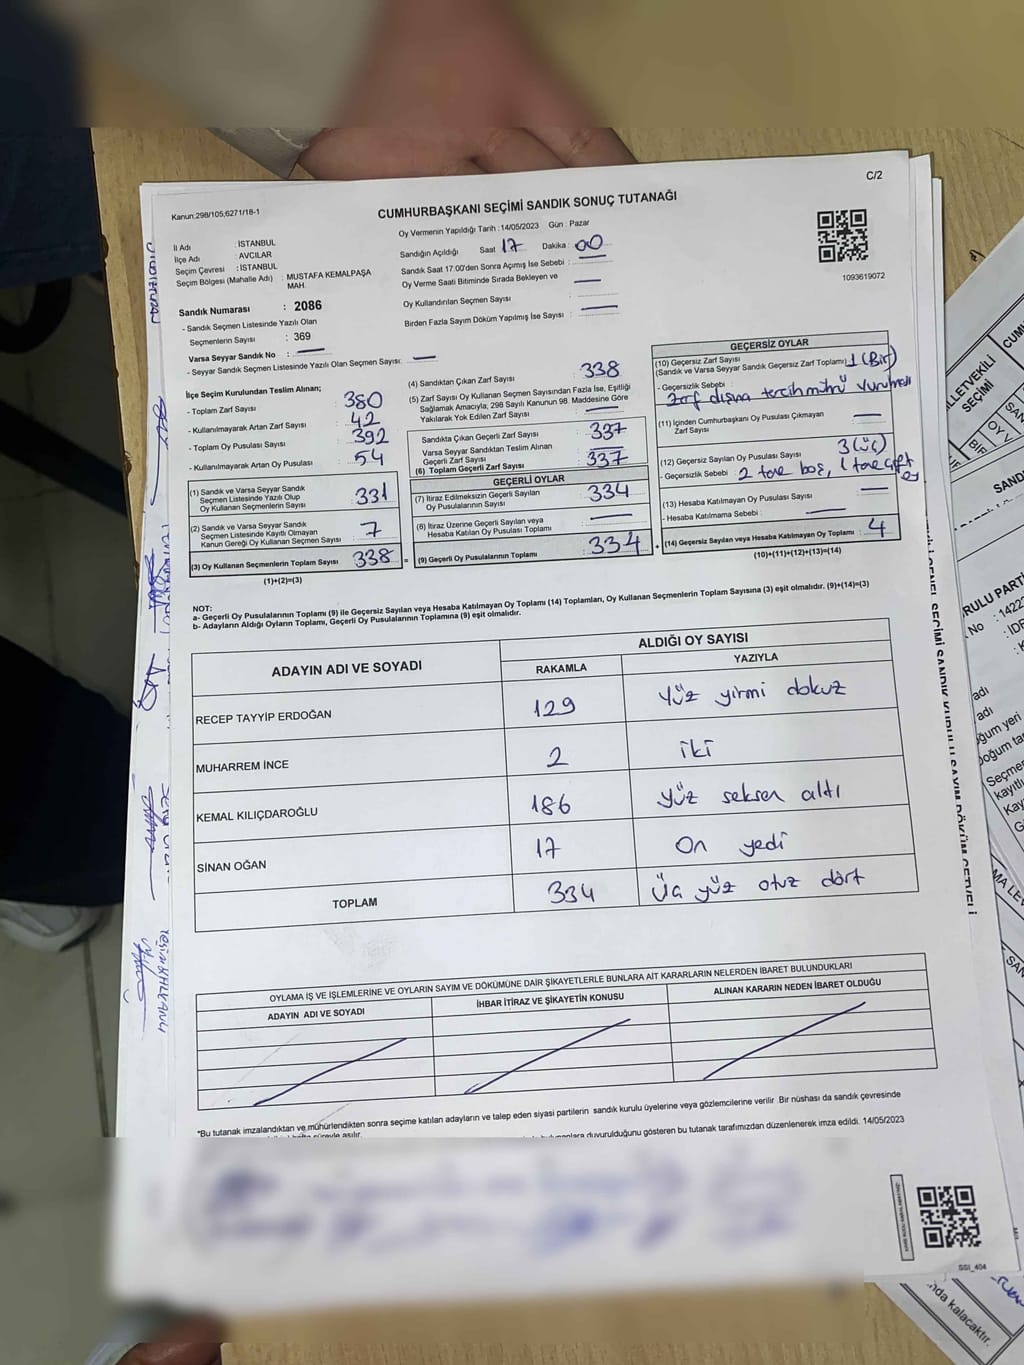 C/2
Kanun:298/105;6271/18-1
CUMHURBAŞKANI SEÇİMİ SANDIK SONUÇ TUTANAĞI
Oy Vermenin Yapıldığı Tarih :14/05/2023 Gün : Pazar
İl Adı : İSTANBUL
İlçe Adı : AVCILAR
Seçim Çevresi : İSTANBUL
Seçim Bölgesi (Mahalle Adı) : MUSTAFA KEMALPAŞA MAH.
Sandığın Açıldığı Saat 17 Dakika : 00
Sandık Saat 17.00'den Sonra Açımış İse Sebebi :
Oy Verme Saati Bitiminde Sırada Bekleyen ve
Oy Kullandırılan Seçmen Sayısı :
Birden Fazla Sayım Döküm Yapılmış İse Sayısı :
1093619072
Sandık Numarası : 2086
- Sandık Seçmen Listesinde Yazılı Olan
Seçmenlerin Sayısı : 369
Varsa Seyyar Sandık No :
- Seyyar Sandık Seçmen Listesinde Yazılı Olan Seçmen Sayısı:
İlçe Seçim Kurulundan Teslim Alınan;
- Toplam Zarf Sayısı 380
- Kullanılmayarak Artan Zarf Sayısı 42
- Toplam Oy Pusulası Sayısı 392
- Kullanılmayarak Artan Oy Pusulası 54
(1) Sandık ve Varsa Seyyar Sandık
Seçmen Listesinde Yazılı Olup
Oy Kullanan Seçmenlerin Sayısı 331
(2) Sandık ve Varsa Seyyar Sandık
Seçmen Listesinde Kayıtlı Olmayan
Kanun Gereği Oy Kullanan Seçmen Sayısı 7
(3) Oy Kullanan Seçmenlerin Toplam Sayısı 338 =
(1)+(2)=(3)
(4) Sandıktan Çıkan Zarf Sayısı 338
(5) Zarf Sayısı Oy Kullanan Seçmen Sayısından Fazla İse, Eşitliği
Sağlamak Amacıyla, 298 Sayılı Kanunun 98. Maddesine Göre
Yakılarak Yok Edilen Zarf Sayısı :
Sandıkta Çıkan Geçerli Zarf Sayısı : 337
Varsa Seyyar Sandıktan Teslim Alınan
Geçerli Zarf Sayısı
(6) Toplam Geçerli Zarf Sayısı 337
GEÇERLİ OYLAR
(7) İtiraz Edilmeksizin Geçerli Sayılan
Oy Pusulalarının Sayısı 334
(8) İtiraz Üzerine Geçerli Sayılan veya
Hesaba Katılan Oy Pusulası Toplamı
(9) Geçerli Oy Pusulalarının Toplamı 334 +
GEÇERSİZ OYLAR
(10) Geçersiz Zarf Sayısı
(Sandık ve Varsa Seyyar Sandık Geçersiz Zarf Toplamı) 1 (Bir)
- Geçersizlik Sebebi :
Zarf dışına tercih mührü vurulması
(11) İçinden Cumhurbaşkanı Oy Pusulası Çıkmayan
Zarf Sayısı
(12) Geçersiz Sayılan Oy Pusulası Sayısı 3 (üç)
- Geçersizlik Sebebi : 2 tane boş, 1 tane çift oy
(13) Hesaba Katılmayan Oy Pusulası Sayısı :
- Hesaba Katılmama Sebebi :
(14) Geçersiz Sayılan veya Hesaba Katılmayan Oy Toplamı : 4
(10)+(11)+(12)+(13)=(14)
NOT:
a- Geçerli Oy Pusulalarının Toplamı (9) ile Geçersiz Sayılan veya Hesaba Katılmayan Oy Toplamı (14) Toplamları, Oy Kullanan Seçmenlerin Toplam Sayısına (3) eşit olmalıdır. (9)+(14)=(3)
b- Adayların Aldığı Oyların Toplamı, Geçerli Oy Pusulalarının Toplamına (9) eşit olmalıdır.
ADAYIN ADI VE SOYADI ALDIĞI OY SAYISI
RAKAMLA YAZIYLA
RECEP TAYYİP ERDOĞAN 129 Yüz yirmi dokuz
MUHARREM İNCE 2 iki
KEMAL KILIÇDAROĞLU 186 yüz seksen altı
SİNAN OĞAN 17 On yedi
TOPLAM 334 Üç yüz otuz dört
OYLAMA İŞ VE İŞLEMLERİNE VE OYLARIN SAYIM VE DÖKÜMÜNE DAİR ŞİKAYETLERLE BUNLARA AİT KARARLARIN NELERDEN İBARET BULUNDUKLARI
ADAYIN ADI VE SOYADI İHBAR İTİRAZ VE ŞİKAYETİN KONUSU ALINAN KARARIN NEDEN İBARET OLDUĞU
*Bu tutanak imzalandıktan ve mühürlendikten sonra seçime katılan adayların ve talep eden siyasi partilerin sandık kurulu üyelerine veya gözlemcilerine verilir .Bir nüshası da sandık çevresinde
duyurulduğunu gösteren bu tutanak tarafımızdan düzenlenerek imza edildi. 14/05/2023
SSI_404
SEÇİMİ
OY V
BİR
SAND
RULU PARTİ
No : 1422
adı
adı
ğum yeri
oğum tar
Seçmen
kayıtlı
nda kalacaktır.